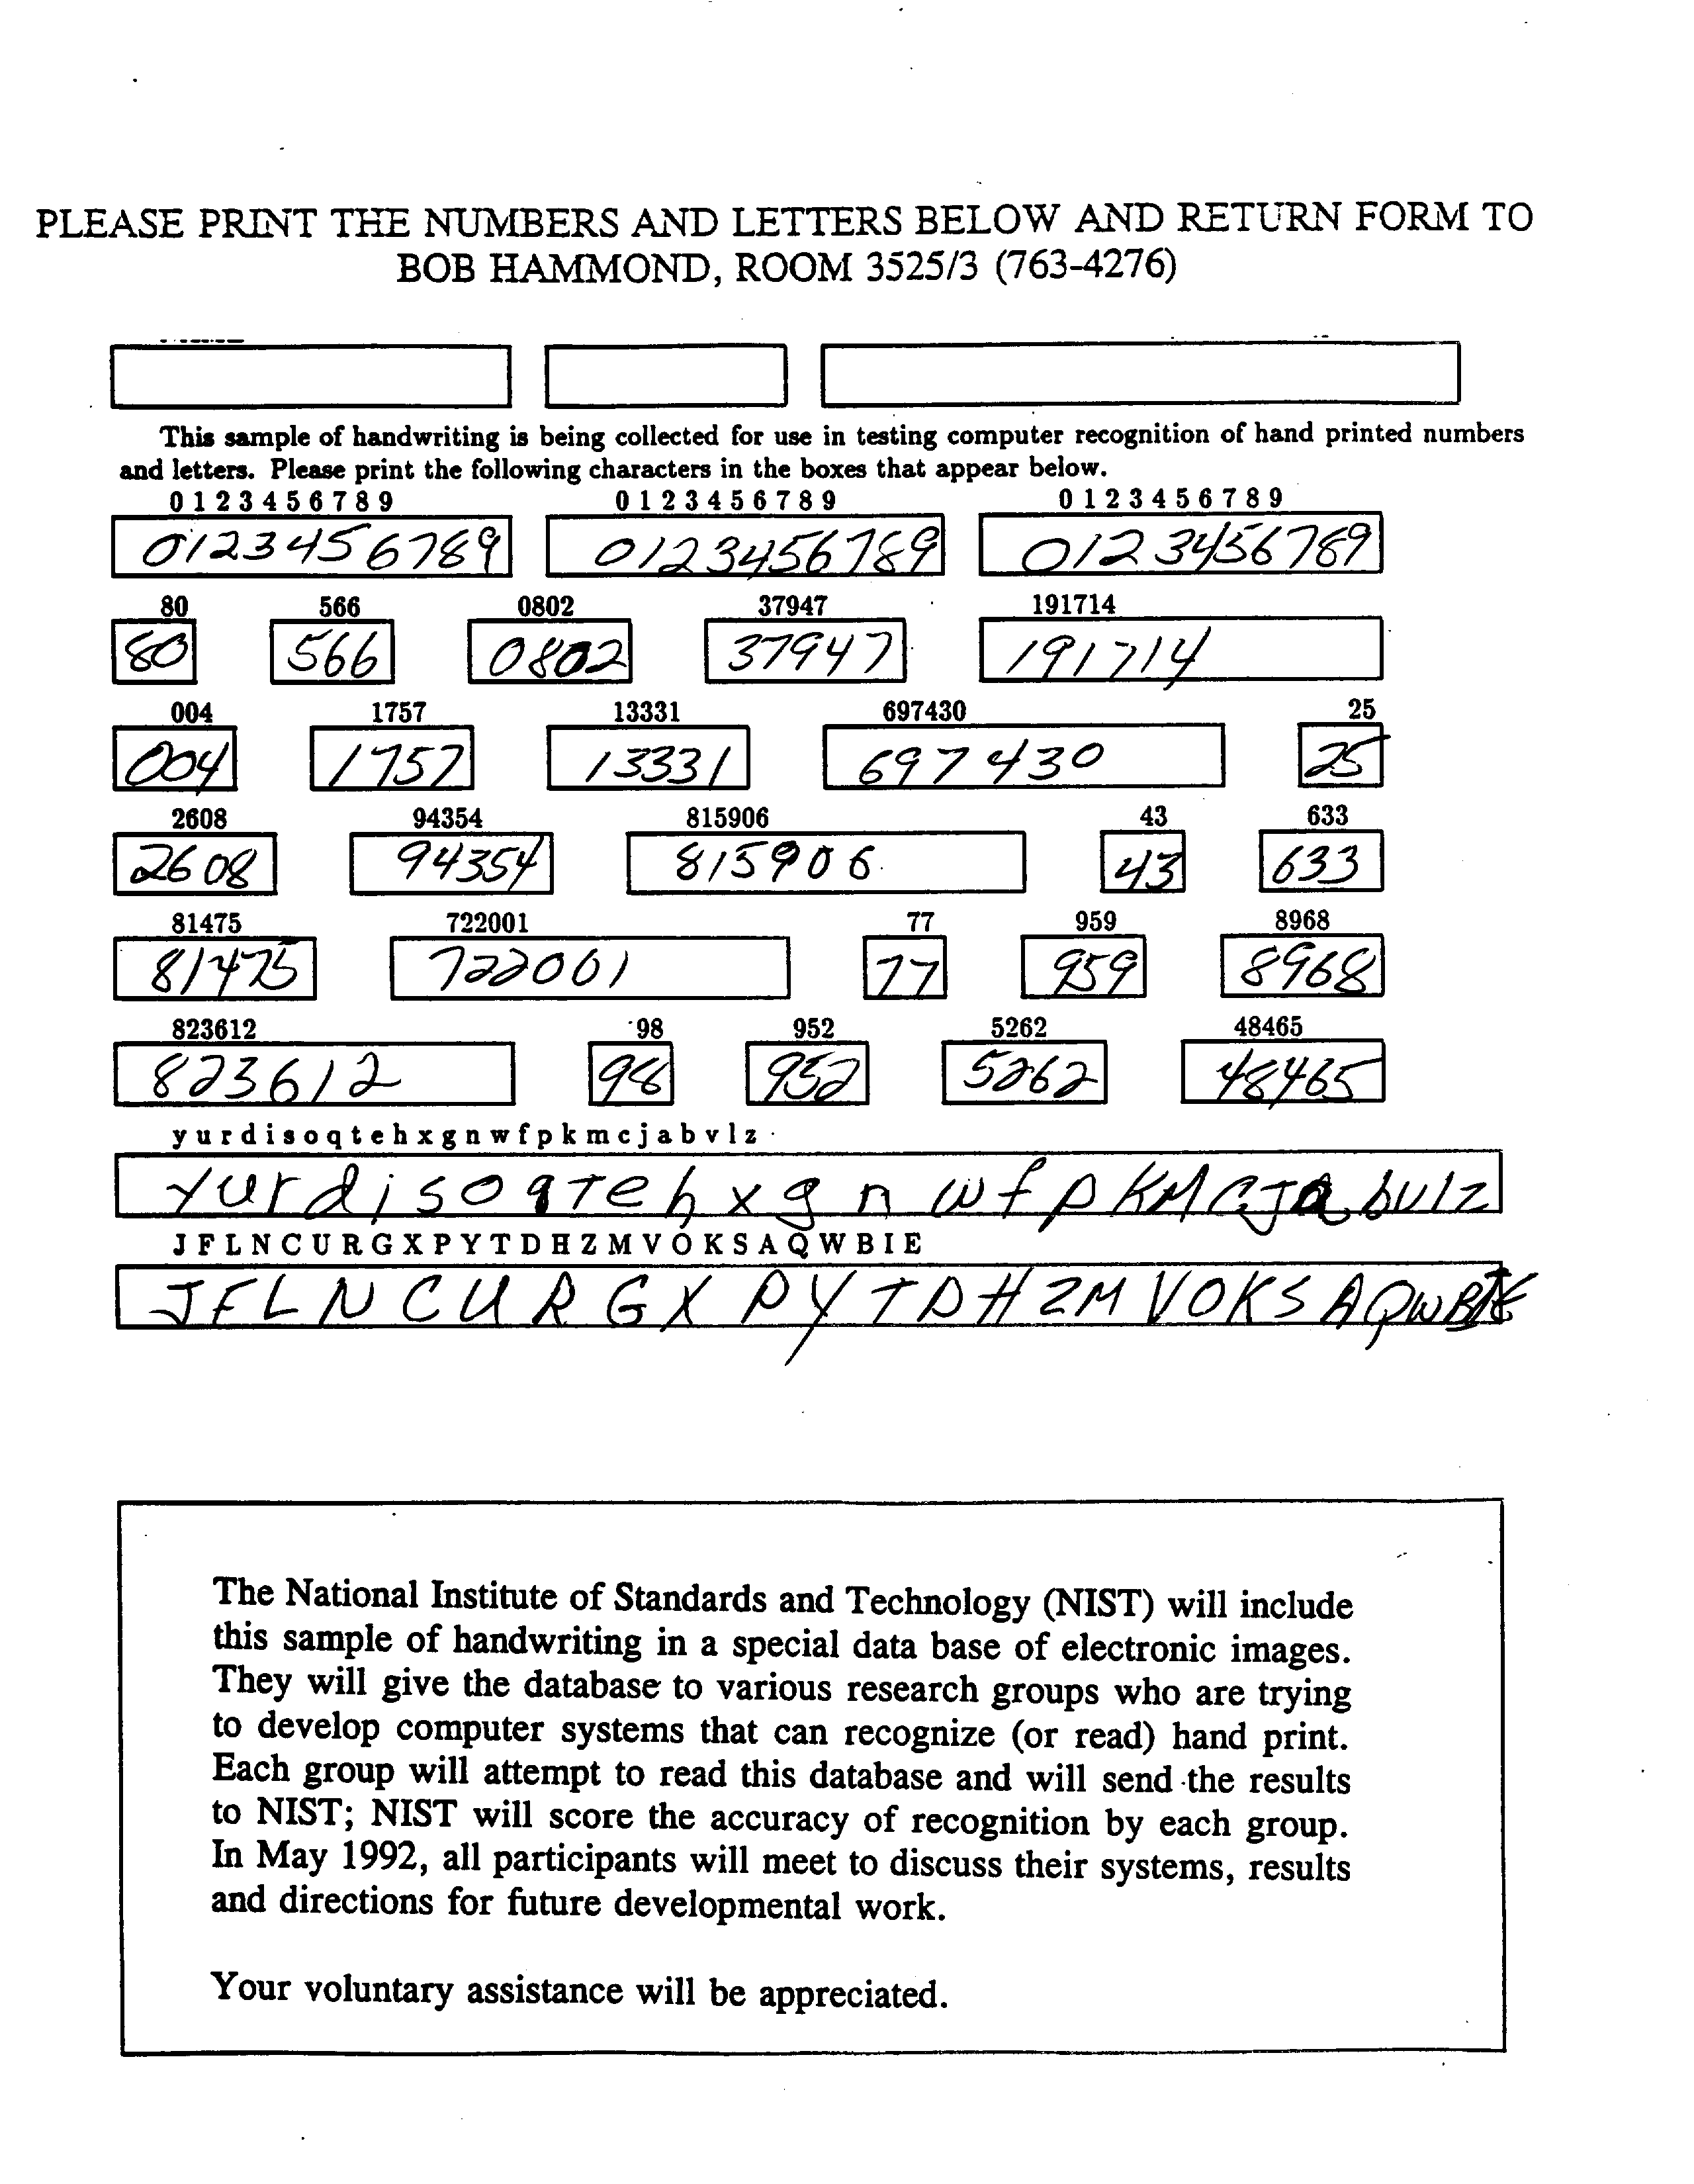 PLEASE PRINT THE NUMBERS AND LETTERS BELOW AND RETURN FORM TO
BOB HAMMOND, ROOM 3525/3 (763-4276)
This sample of handwriting is being collected for use in testing computer recognition of hand printed numbers
and letters. Please print the following characters in the boxes that appear below.
0 1 2 3 4 5 6 7 8 9 0 1 2 3 4 5 6 7 8 9 0 1 2 3 4 5 6 7 8 9
0123456789 0123456789 0123456789
80 566 0802 37947 191714
80 566 0802 37947 191714
004 1757 13331 697430 25
004 1757 13331 697430 25
2608 94354 815906 43 633
2608 94354 815906 43 633
81475 722001 77 959 8968
81475 722001 77 959 8968
823612 98 952 5262 48465
823612 98 952 5262 48465
y u r d i s o q t e h x g n w f p k m c j a b v l z
y u r d i s o q T e h x g n w f p K M C J a b v l z
J F L N C U R G X P Y T D H Z M V O K S A Q W B I E
J F L N C U R G X P Y T D H Z M V O K S A Q W B I E
The National Institute of Standards and Technology (NIST) will include
this sample of handwriting in a special data base of electronic images.
They will give the database to various research groups who are trying
to develop computer systems that can recognize (or read) hand print.
Each group will attempt to read this database and will send the results
to NIST; NIST will score the accuracy of recognition by each group.
In May 1992, all participants will meet to discuss their systems, results
and directions for future developmental work.
Your voluntary assistance will be appreciated.